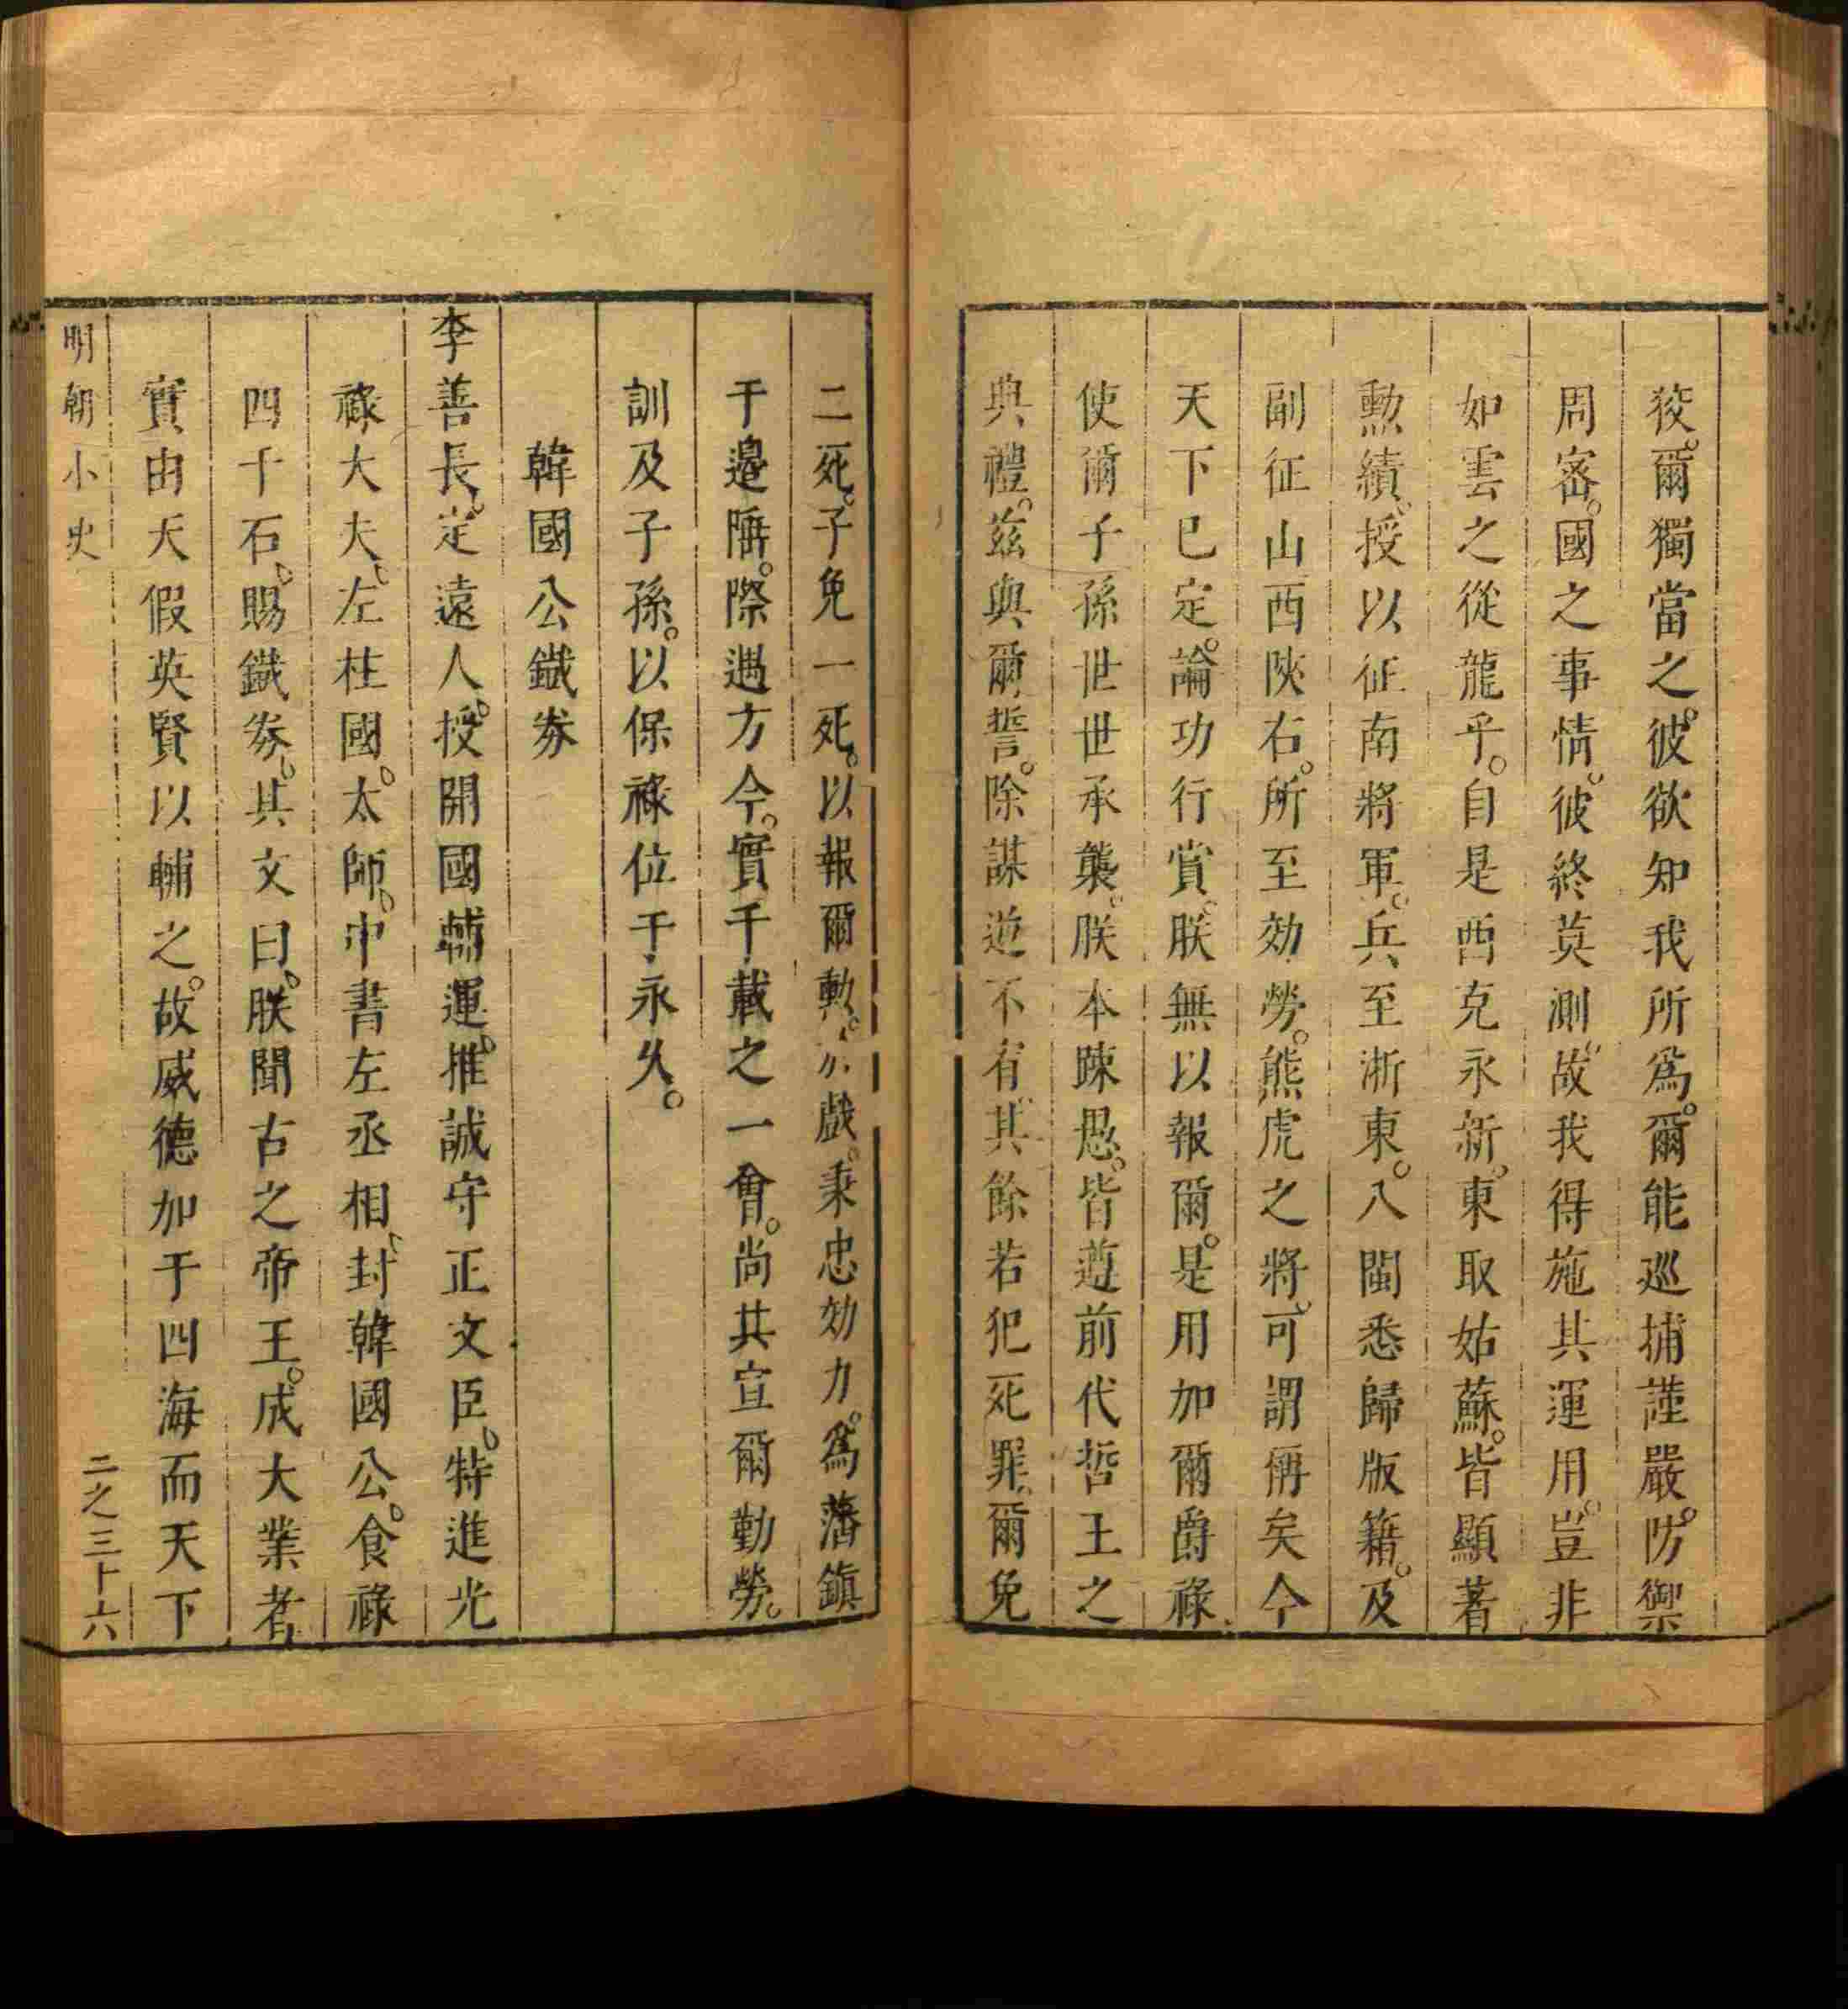 狡。爾獨當之。彼欲知我所爲。爾能巡捕謹嚴。防禦
周密。國之事情。彼終莫測。故我得施其運用。豈非
如雲之從龍乎。自是西克永新。東取姑蘇。皆顯著
勲績。授以征南將軍。兵至浙東。八閩悉歸版籍。及
副征山西陝右。所至効勞。熊虎之將。可謂侢矣今
天下已定。論功行賞。朕無以報爾。是用加爾爵祿
使爾子孫世世承襲。朕本踈愚。皆遵前代哲王之
典禮。茲與爾誓。除謀逆不宥。其餘若犯死罪。爾免
二死。子免一死。以報爾勲。於戲。秉忠効力。爲藩鎮
于邉陲。際遇方今。實千載之一會。尚其宣爾勤勞。
訓及子孫。以保祿位于永久。
韓國公鐵券
李善長。定遠人。授開國輔運。推誠守正文臣。特進光
祿大夫。左柱國。太師。中書左丞相。封韓國公。食祿
四千石。賜鐵券。其文曰。朕聞古之帝王。成大業者。
實由天假英賢以輔之。故威德加于四海而天下
明朝小史
二之三十六